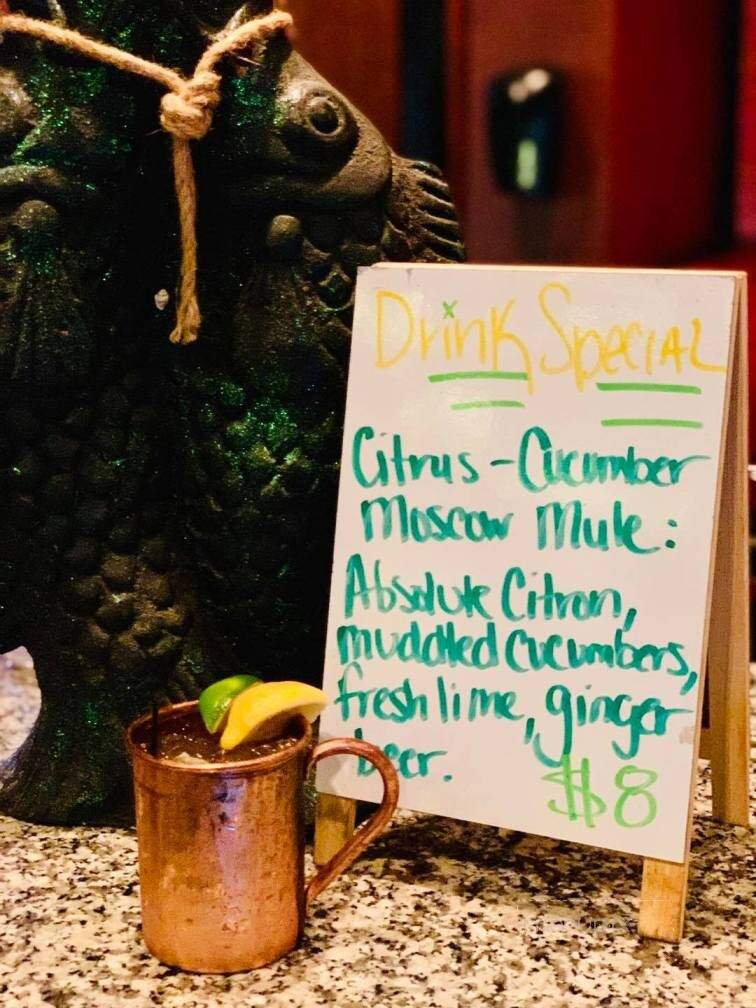 Drink Special
Citrus-Cucumber
Moscow Mule:
Absolute Citron,
muddled cucumbers,
fresh lime, ginger
beer.
$8